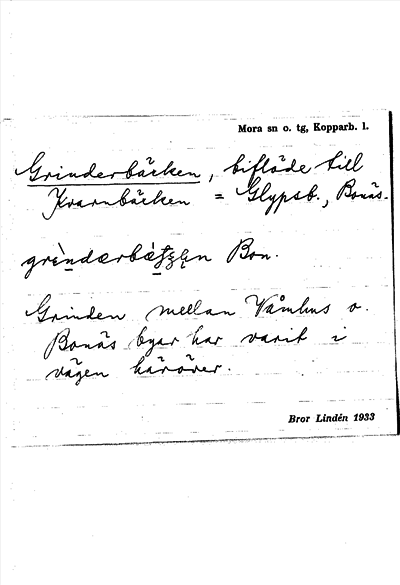 Mora sn o. tg, Kopparb. l.
Grinderbäcken, biflöde till
Kvarnbäcken = Glypsb., Bonäs.
Bon.
Grinden mellan Våmhus o.
Bonäs byar har varit i
vägen häröver.
Bror Lindén 1933